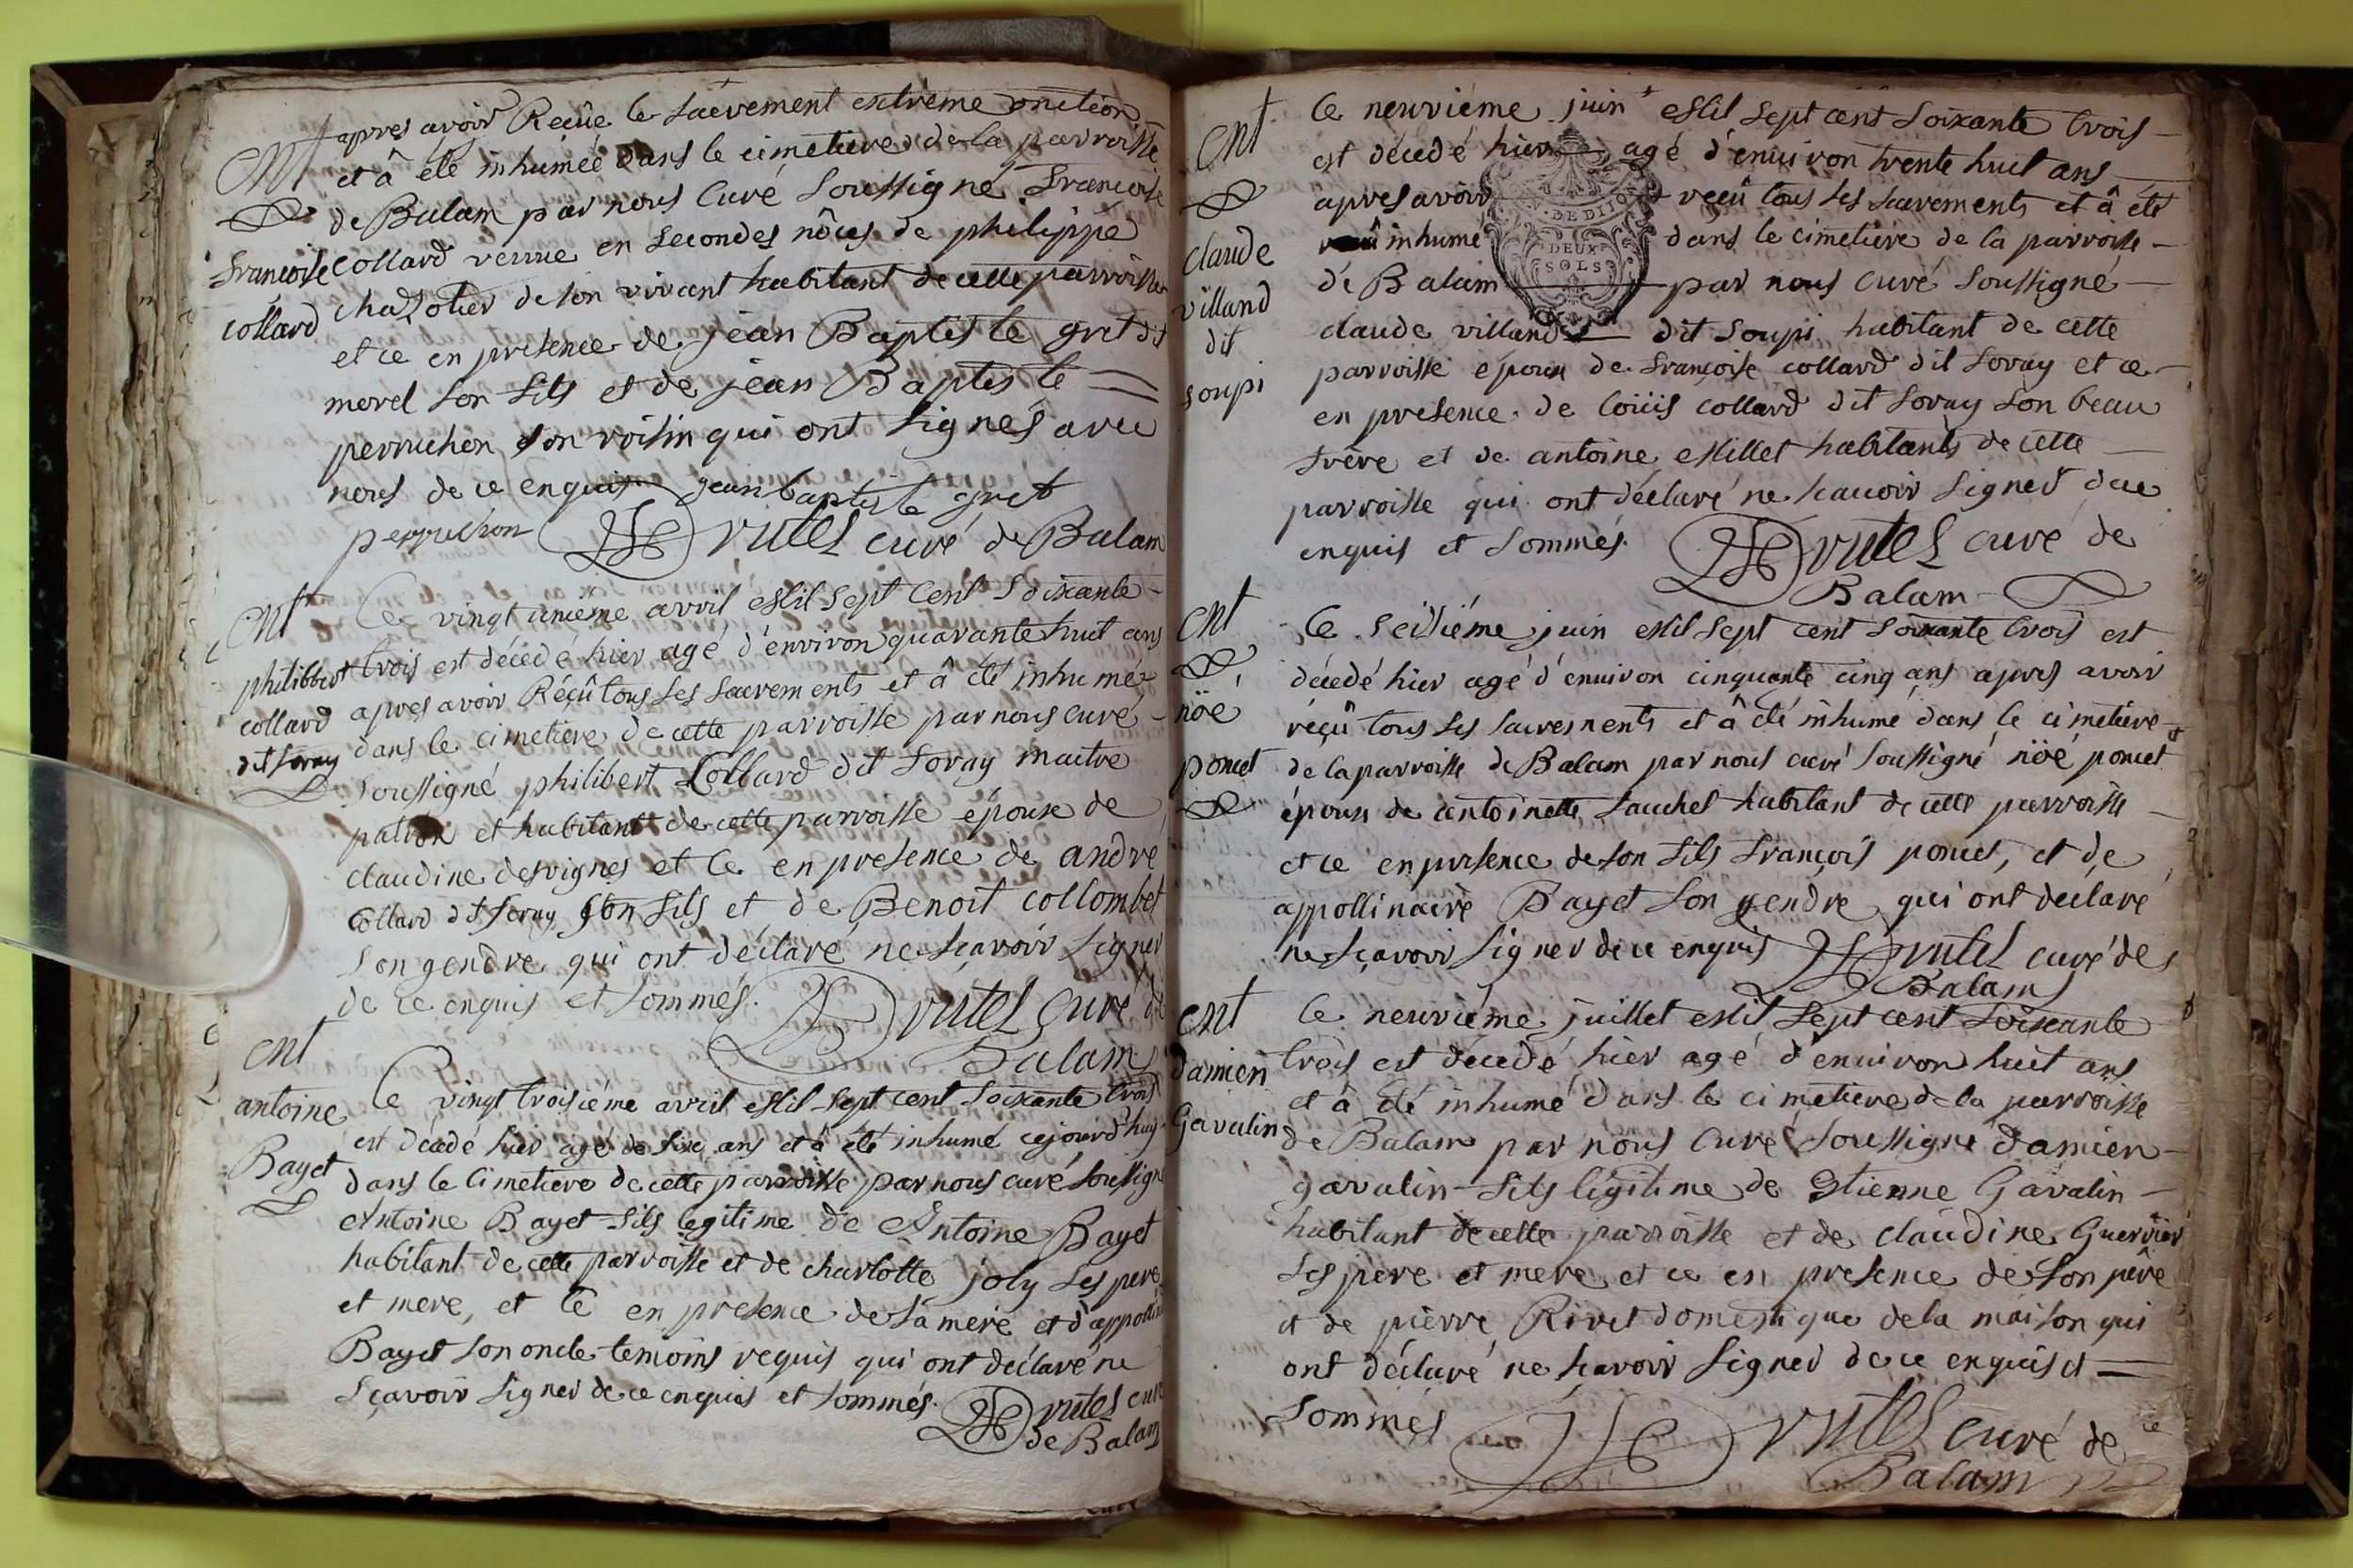 apres avoir Reçûe le sacrement extrême onction
Ent et â été inhumée dans le cimetiere de la parroisse
de Balam par nous Curé Soussigné Francoise
Francoise Collard veuve en secondes nôces de philippe
collard chazotier de son vivant habitant de cette parroisse
et ce en presence de jean Baptiste gret dit
morel son fils et de jean Baptiste
perruchon son voisin qui ont signés avec
nous de ce enquis jean baptiste gret
perruchon Drutel curé de Balam
Ent Ce vingt unieme avril Mil sept cent soixante
philibbert trois est décédé hier agé d'environ quarante huit ans
collard apres avoir Réçû tous ses sacrements et â été inhumé
dit Foray dans le cimetiere de cette parroisse par nous curé
soussigné philibert Collard dit Foray maitre
patron et habitant de cette parroisse époux de
claudine desvignes et ce en presence de andre
Collard dit Foray son fils et de Benoit collombet
son gendre qui ont déclaré ne sçavoir signer
de ce enquis et sommés. Drutel Curé de
Balam
Ent
antoine Ce vingt troisiéme avril Mil sept cent soixante trois
est décédé hier agé de six ans et â été inhumé cejourd'huy
Bayet dans le Cimetiere de cette parroisse par nous curé soussigné
Antoine Bayet fils legitime de Antoine Bayet
habitant de cette parroisse et de charlotte joly ses pere
et mere, et ce en presence de sa mere et d'appollin
Bayet son oncle temoins requis qui ont déclaré ne
sçavoir signer de ce enquis et sommés. Drutel curé
de Balam
Ce neuviéme juin Mil sept cent soixante trois
Ent est décedé hier agé d'environ trente huit ans
apres avoir reçû tous ses sacrements et â été
claude inhumé dans le cimetiere de la parroisse
DE DIJON
DEUX
SOLS
villand dé Balam par nous curé soussigné
dit claude villand dit soupi habitant de cette
soupi parroisse epoux de Françoise collard dit Foray et ce
en presence de Loüis collard dit Foray son beau
frère et de antoine Millet habitants de cette
parroisse qui ont déclaré ne scavoir signer de ce
enquis et sommés. Drutel curé de
Balam
Ent Ce seiziéme juin Mil sept cent soixante trois est
décedé hier agé d'environ cinquante cinq ans apres avoir
nöé réçû tous ses sacrements et â été inhumé dans le cimetiere
poncet de la parroisse de Balam par nous curé soussigné nöé poncet
époux de antoinette Fauchet habitant de cette parroisse
et ce en presence de son fils François poncet, et de
appollinaire Bayet son gendre qui ont déclaré
ne sçavoir signer de ce enquis Drutel curé de
Balam
Ent Ce neuviéme juillet Mil sept cent soixante
damien trois est décedé hier agé d'environ huit ans
et â été inhumé dans le cimetiere de la parroisse
Gavalin de Balam par nous Curé Soussigné damien
gavalin fils légitime de Etienne Gavalin
habitant de cette parroisse et de claudine Guerrier
ses pere et mere, et ce en presence de son pére
et de pierre Rivet domestique de la maison qui
ont déclaré ne sçavoir signer de ce enquis et
sommés Drutel curé de
Balam